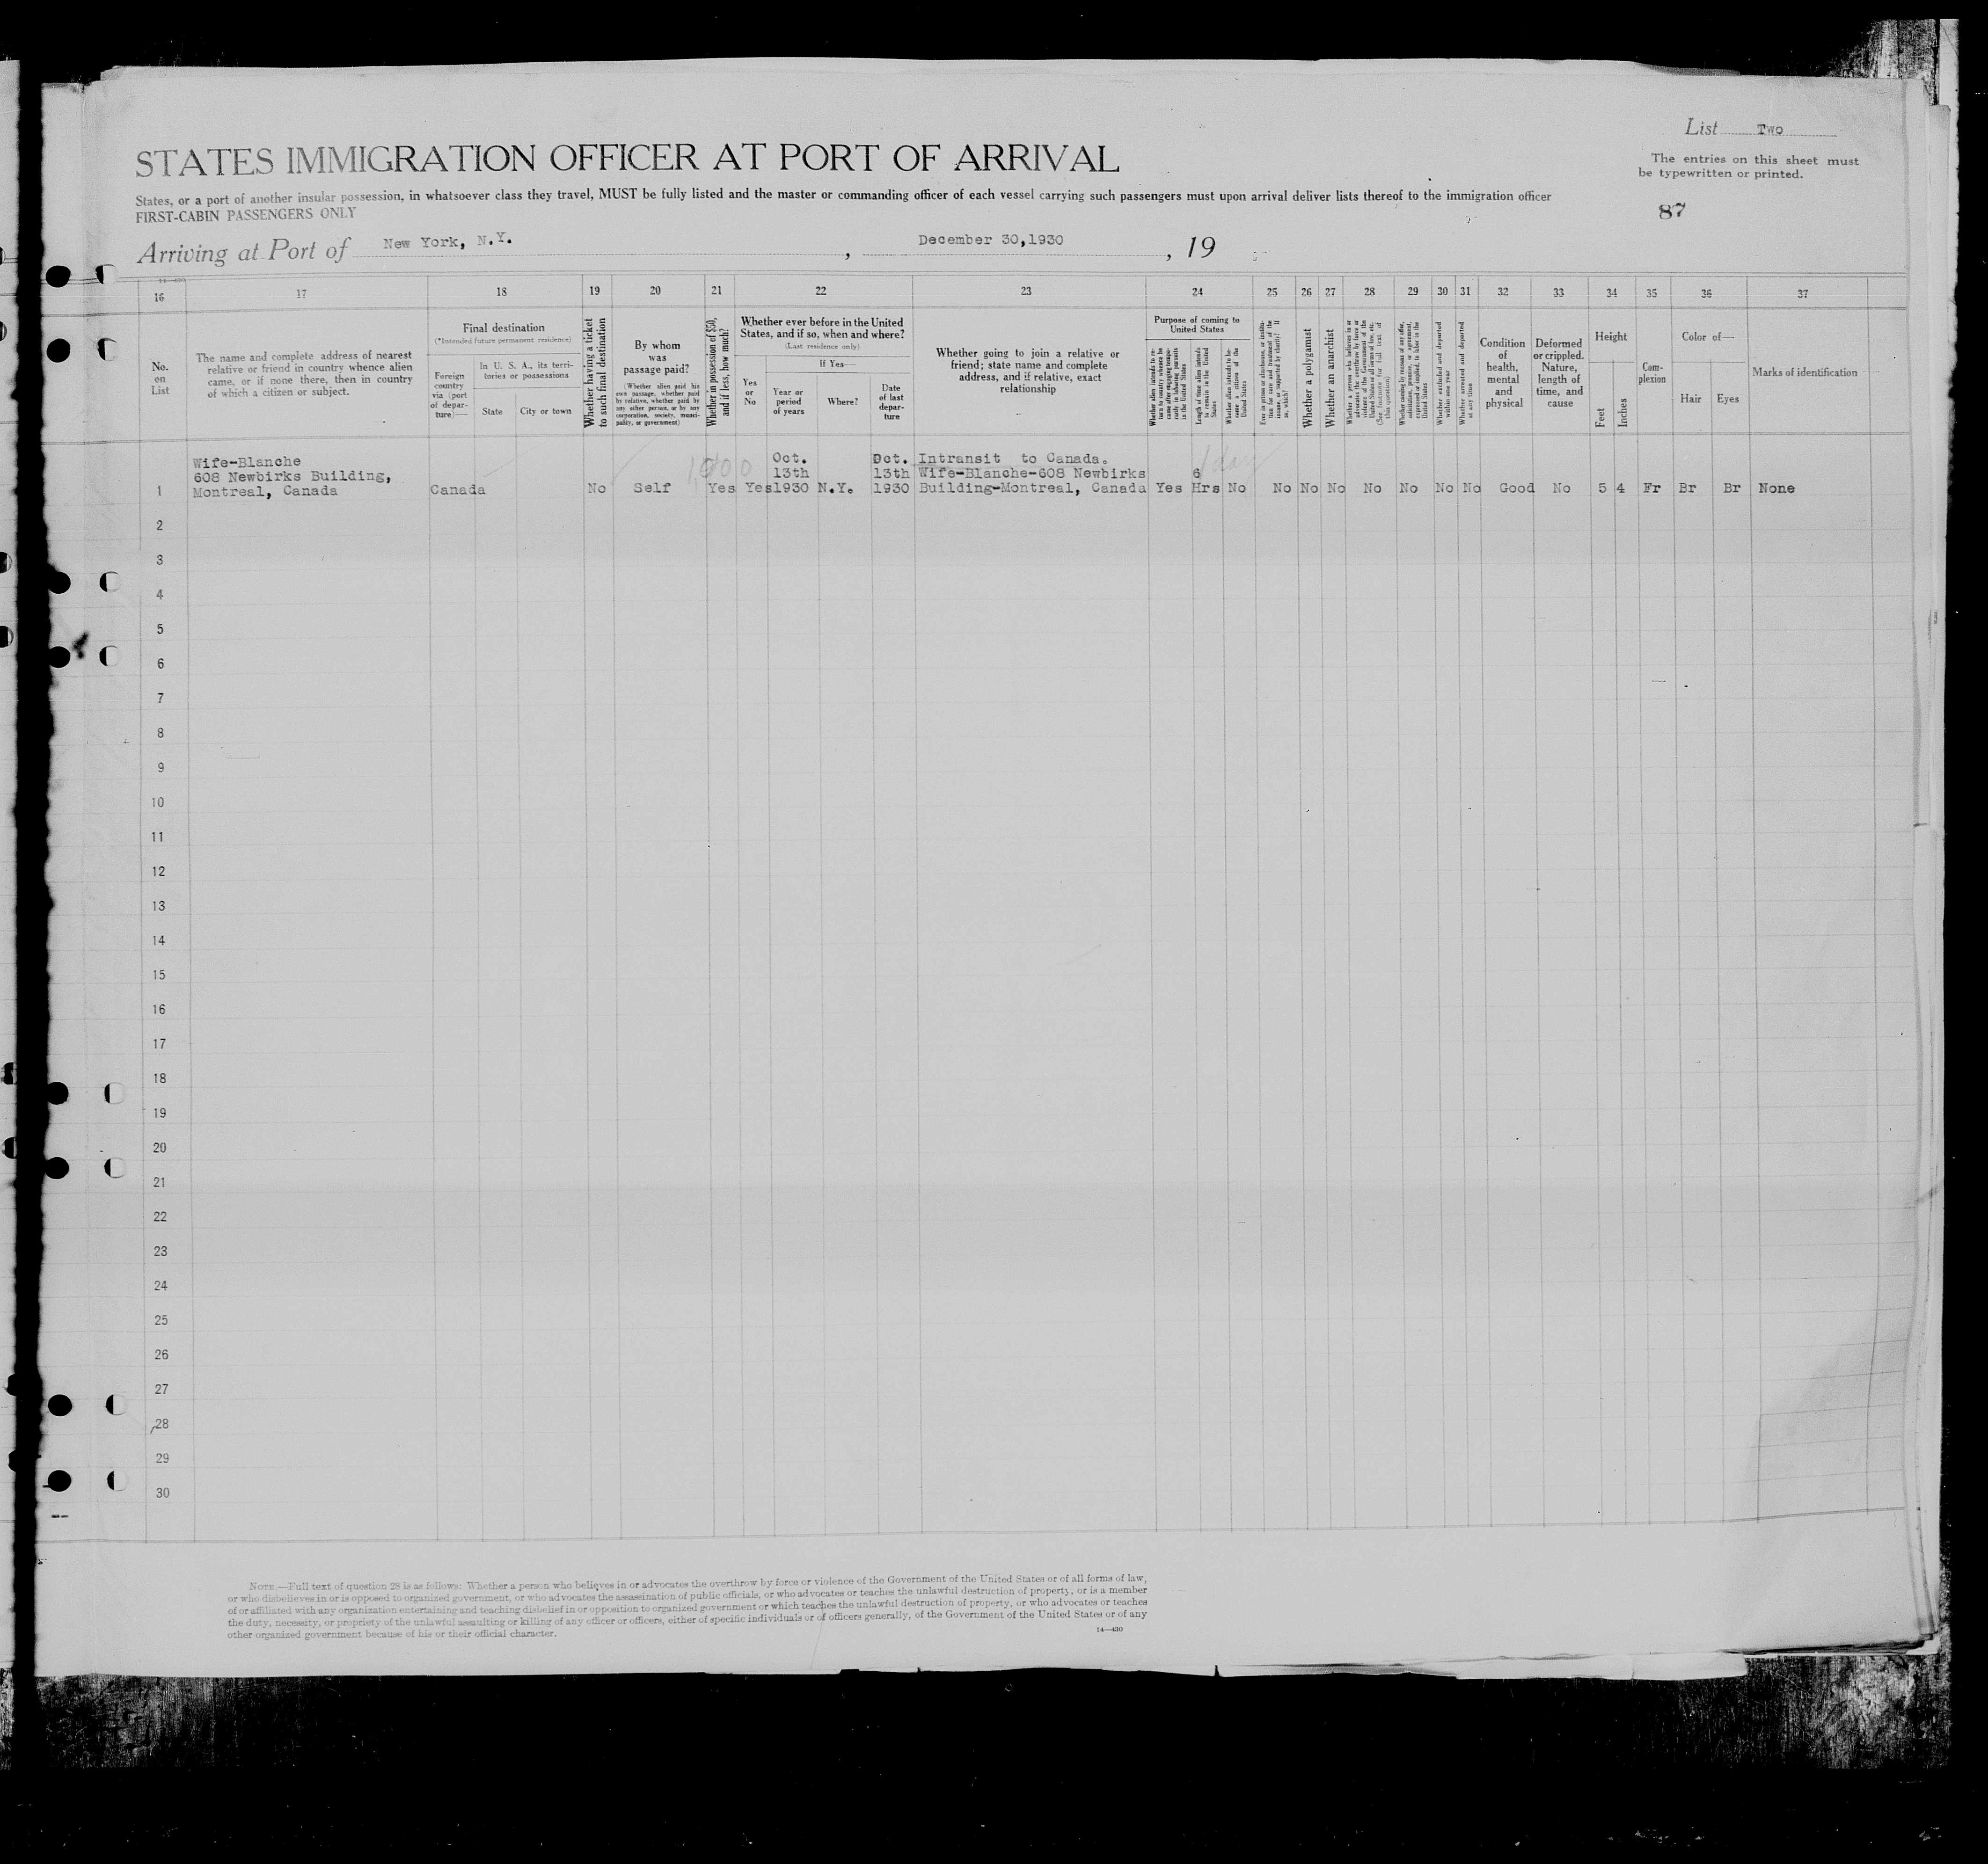 List Two
STATES IMMIGRATION OFFICER AT PORT OF ARRIVAL
The entries on this sheet must
be typewritten or printed.
States, or a port of another insular possession, in whatsoever class they travel, MUST be fully listed and the master or commanding officer of each vessel carrying such passengers must upon arrival deliver lists thereof to the immigration officer
FIRST-CABIN PASSENGERS ONLY
87
Arriving at Port of New York, N.Y., December 30,1930, 19
16 17 18 19 20 21 22 23 24 25 26 27 28 29 30 31 32 33 34 35 36 37
No.
on
List
The name and complete address of nearest
relative or friend in country whence alien
came, or if none there, then in country
of which a citizen or subject.
Final destination
(*Intended future permanent residence)
Foreign
country
via (port
of depar-
ture)—
In U. S. A., its terri-
tories or possessions
State
City or town
Whether having a ticket
to such final destination
By whom
was
passage paid?
(Whether alien paid his
own passage, whether paid
by relative, whether paid by
any other person, or by any
corporation, society, munici-
pality, or government)
Whether in possession of $50,
and if less, how much?
Whether ever before in the United
States, and if so, when and where?
(Last residence only)
Yes
or
No
If Yes—
Year or
period
of years
Where?
Date
of last
depar-
ture
Whether going to join a relative or
friend; state name and complete
address, and if relative, exact
relationship
Purpose of coming to
United States
Whether alien intends to re-
turn to country whence he
came after engaging tempo-
rarily in laboring pursuits
in the United States
Length of time alien intends
to remain in the United
States
Whether alien intends to be-
come a citizen of the
United States
Ever in prison or almshouse, or institu-
tion for care and treatment of the
insane, or supported by charity? If
so, which?
Whether a polygamist
Whether an anarchist
Whether a person who believes in or
advocates the overthrow by force or
violence of the Government of the
United States or all forms of law, etc.
(See footnote for full text of
this question)
Whether coming by reason of any offer,
solicitation, promise, or agreement,
expressed or implied, to labor in the
United States
Whether excluded and deported
within one year
Whether arrested and deported
at any time
Condition
of
health,
mental
and
physical
Deformed
or crippled.
Nature,
length of
time, and
cause
Height
Feet
Inches
Com-
plexion
Color of—
Hair
Eyes
Marks of identification
Wife-Blanche
608 Newbirks Building,
1 Montreal, Canada
Canada
No
Self
Yes
Yes
Oct.
13th
1930
N.Y.
Oct.
13th
1930
Intransit to Canada.
Wife-Blanche-608 Newbirks
Building-Montreal, Canada
Yes
1 day
6
Hrs
No
No No No No No No No Good No 5 4 Fr Br Br None
2
3
4
5
6
7
8
9
10
11
12
13
14
15
16
17
18
19
20
21
22
23
24
25
26
27
28
29
30
NOTE.—Full text of question 28 is as follows: Whether a person who believes in or advocates the overthrow by force or violence of the Government of the United States or of all forms of law,
or who disbelieves in or is opposed to organized government, or who advocates the assassination of public officials, or who advocates or teaches the unlawful destruction of property, or is a member
of or affiliated with any organization entertaining and teaching disbelief in or opposition to organized government or which teaches the unlawful destruction of property, or who advocates or teaches
the duty, necessity, or propriety of the unlawful assaulting or killing of any officer or officers, either of specific individuals or of officers generally, of the Government of the United States or of any
other organized government because of his or their official character.
14—430